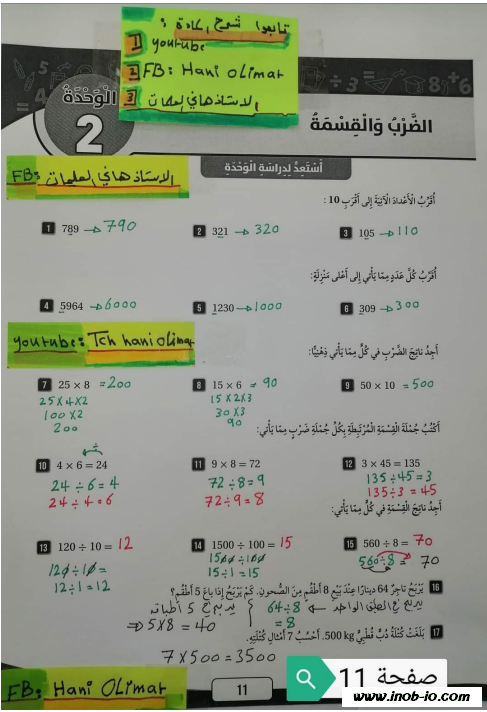 تابعوا شرح المادة :
1 youtube
2 FB: Hani Olimat
3 الاستاذ هاني العليمات
الْوَحْدَةُ
2
الضَّرْبُ وَالْقِسْمَةُ
أَسْتَعِدُّ لِدِرَاسَةِ الْوَحْدَةِ
FB: الاستاذ هاني العليمات
أُقَرِّبُ الْأَعْدَادَ الْآتِيَةَ إِلَى أَقْرَبِ 10 :
1 789 → 790
2 321 → 320
3 105 → 110
أُقَرِّبُ كُلَّ عَدَدٍ مِمَّا يَأْتِي إِلَى أَعْلَى مَنْزِلَةٍ:
4 5964 → 6000
5 1230 → 1000
6 309 → 300
youtube: Tch hani olimat
أَجِدُ نَاتِجَ الضَّرْبِ فِي كُلٍّ مِمَّا يَأْتِي ذِهْنِيًّا:
7 25 × 8 = 200
25 × 4 × 2
100 × 2
200
8 15 × 6 = 90
15 × 2 × 3
30 × 3
90
9 50 × 10 = 500
أَكْتُبُ جُمْلَةَ الْقِسْمَةِ الْمُرْتَبِطَةِ بِكُلِّ جُمْلَةِ ضَرْبٍ مِمَّا يَأْتِي:
10 4 × 6 = 24
24 ÷ 6 = 4
24 ÷ 4 = 6
11 9 × 8 = 72
72 ÷ 8 = 9
72 ÷ 9 = 8
12 3 × 45 = 135
135 ÷ 45 = 3
135 ÷ 3 = 45
أَجِدُ نَاتِجَ الْقِسْمَةِ فِي كُلٍّ مِمَّا يَأْتِي:
13 120 ÷ 10 = 12
120 ÷ 10 =
12 ÷ 1 = 12
14 1500 ÷ 100 = 15
1500 ÷ 100
15 ÷ 1 = 15
15 560 ÷ 8 = 70
560 ÷ 8 = 70
16 يَرْبَحُ تَاجِرٌ 64 دينارًا عِنْدَ بَيْعِ 8 أَطْقُمٍ مِنَ الصُّحونِ. كَمْ يَرْبَحُ إِذَا بَاعَ 5 أَطْقُمٍ؟
يربح في الطقم الواحد ← 64 ÷ 8
= 8
يربح في 5 أطقم
⇒ 5 × 8 = 40
17 بَلَغَتْ كُتْلَةُ دُبٍّ قُطْبِيٍّ 500 kg. أَحْسُبُ 7 أَمْثَالِ كُتْلَتِهِ.
7 × 500 = 3500
FB: Hani OLimat
11
صفحة 11
www.inob-io.com